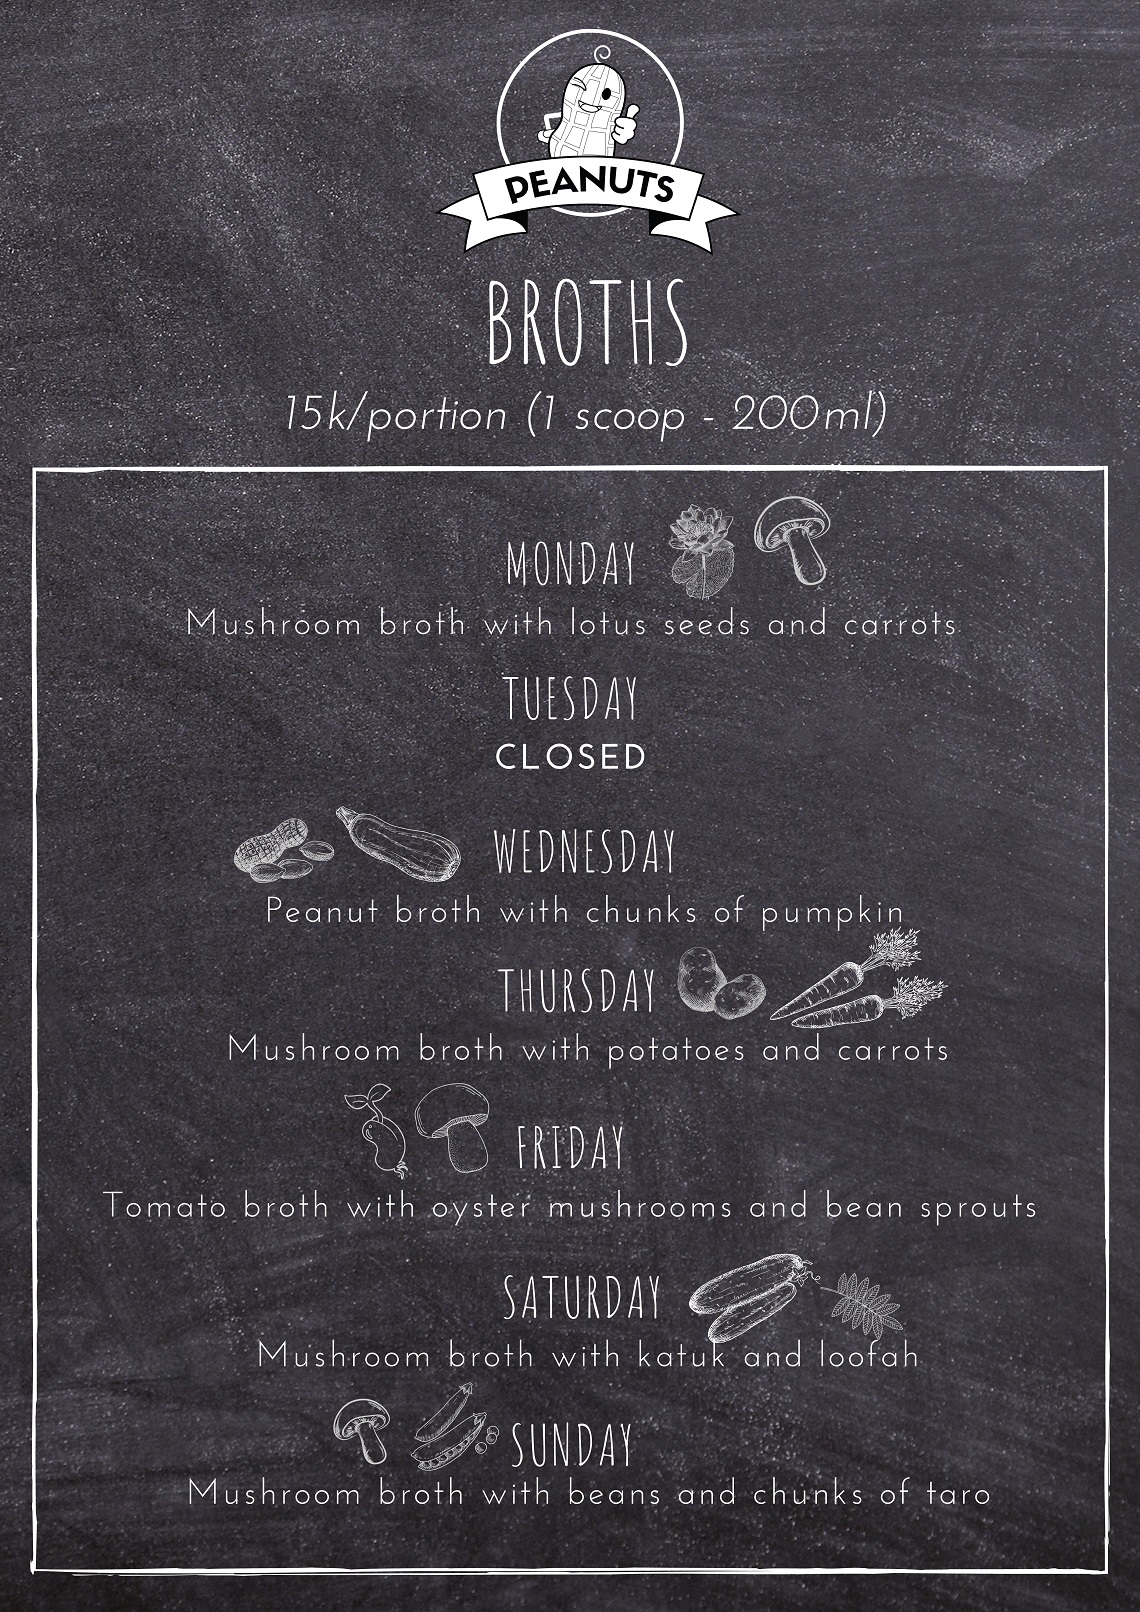 PEANUTS
BROTHS
15k/portion (1 scoop - 200ml)
MONDAY
Mushroom broth with lotus seeds and carrots
TUESDAY
CLOSED
WEDNESDAY
Peanut broth with chunks of pumpkin
THURSDAY
Mushroom broth with potatoes and carrots
FRIDAY
Tomato broth with oyster mushrooms and bean sprouts
SATURDAY
Mushroom broth with katuk and loofah
SUNDAY
Mushroom broth with beans and chunks of taro